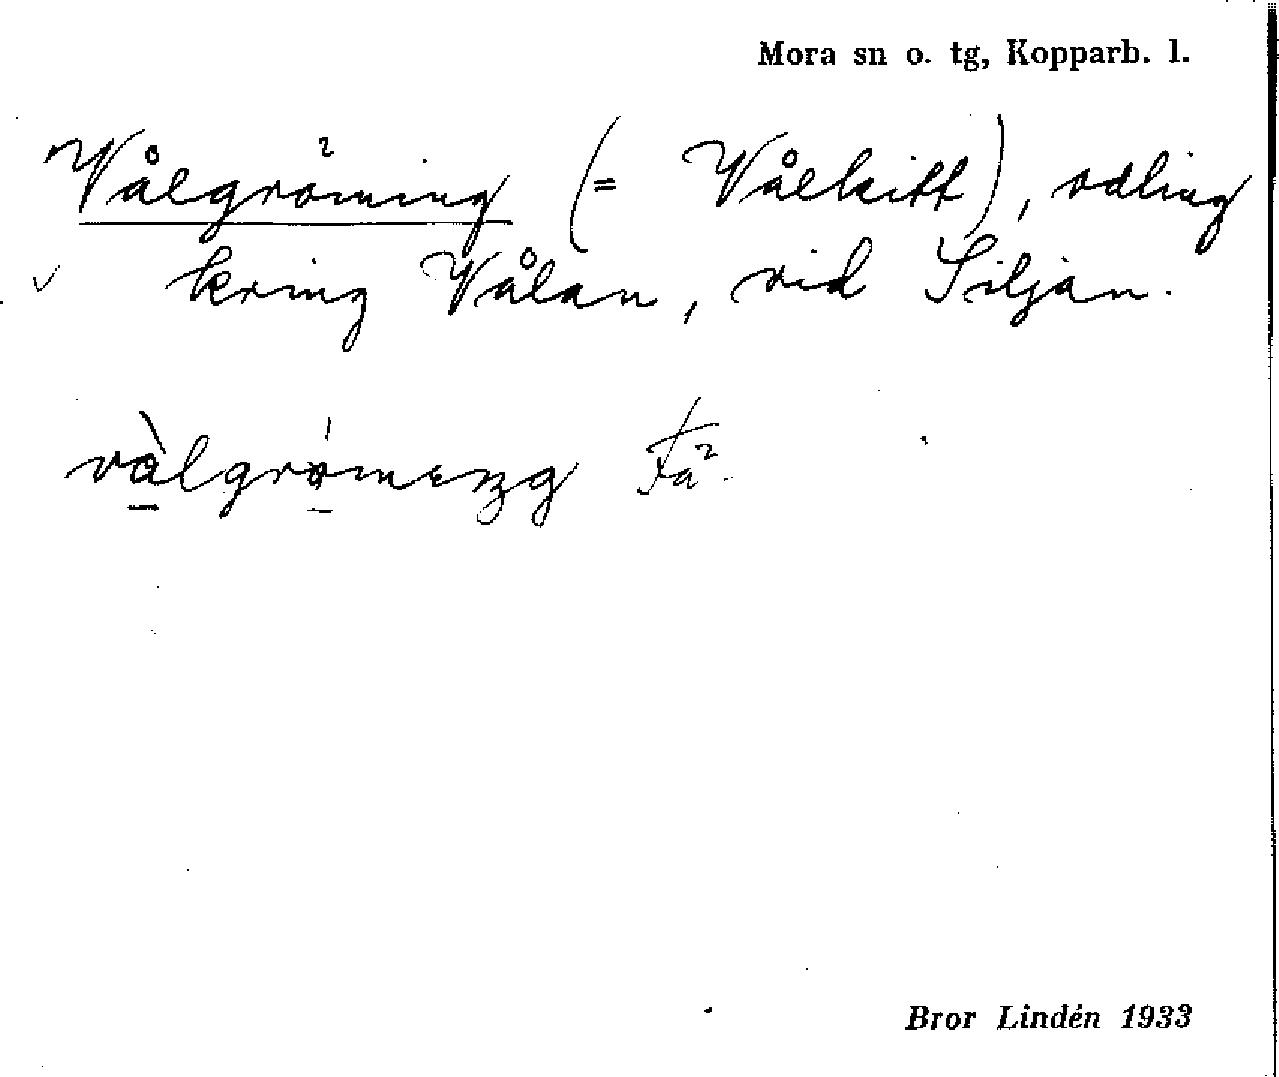 Mora sn o. tg, Kopparb. l.
Vålgröning (= Vålkitt), odling
kring Vålan, vid Siljan.
Bror Lindén 1933